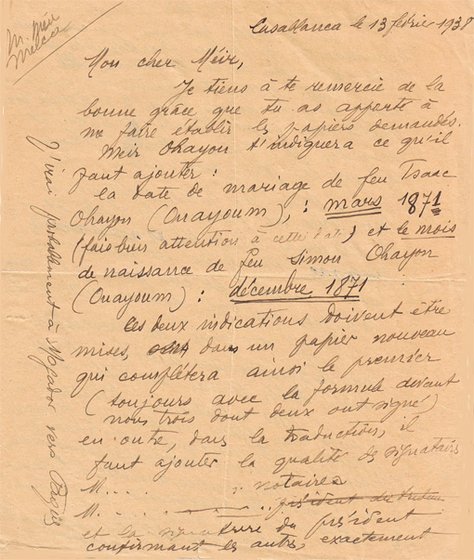 M. Méir
Melca
Casablanca le 13 février 1938
Mon cher Méir,
Je tiens à te remercie de la
bonne grâce que tu as apporté à
me faire établir les papiers demandés.
Meir Ohayon t'indiquera ce qu'il
faut ajouter :
la date de mariage de feu Isaac
Ohayon (Ouayoum), : mars 1871
(fais bien attention à cette date) et le mois
de naissance de feu Simon Ohayon
(Ouayoum) : décembre 1871
Ces deux indications doivent être
mises, dans un papier nouveau
qui complétera ainsi le premier
(toujours avec la formule devant
nous trois dont deux ont signé)
en outre, dans la traduction, il
faut ajouter la qualité des signataires
M.... notaires
M.... président du
et la signature du président
confirmant les autres, exactement
J'irai probablement à Mogador vers